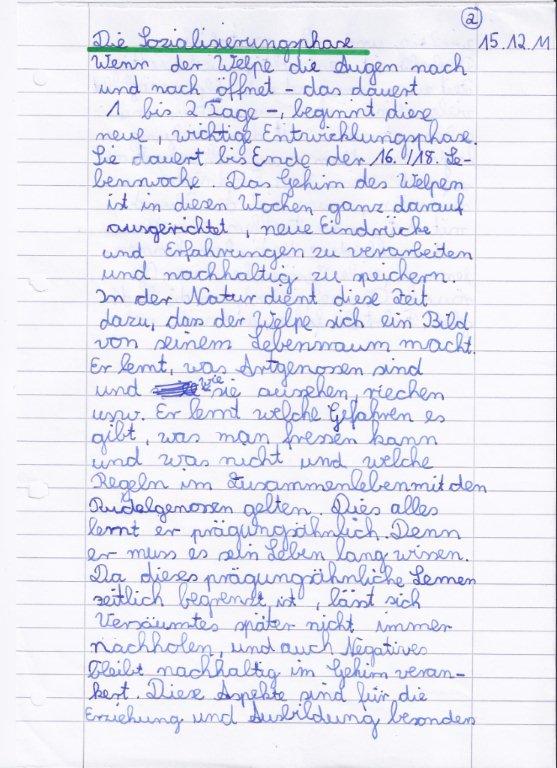 2
Die Sozialisierungsphase 15.12.11
Wenn der Welpe die Augen nach
und nach öffnet - das dauert
1 bis 2 Tage -, beginnt diese
neue, wichtige Entwicklungsphase.
Sie dauert bis Ende der 16./18. Le-
benswoche. Das Gehirn des Welpen
ist in diesen Wochen ganz darauf
ausgerichtet, neue Eindrücke
und Erfahrungen zu verarbeiten
und nachhaltig zu speichern.
In der Natur dient diese Zeit
dazu, das der Welpe sich ein Bild
von seinem Lebensraum macht.
Er lernt, was Artgenossen sind
und wie sie aussehen, riechen
usw. Er lernt welche Gefahren es
gibt, was man fressen kann
und was nicht und welche
Regeln im Zusammenleben mit den
Rudelgenossen gelten. Dies alles
lernt er prägungsähnlich. Denn
er muss es sein Leben lang wissen.
Da dieses prägungsähnliche Lernen
zeitlich begrenzt ist, lässt sich
Versäumtes später nicht immer
nachholen, und auch Negatives
bleibt nachhaltig im Gehirn veran-
kert. Diese Aspekte sind für die
Erziehung und Ausbildung besonders